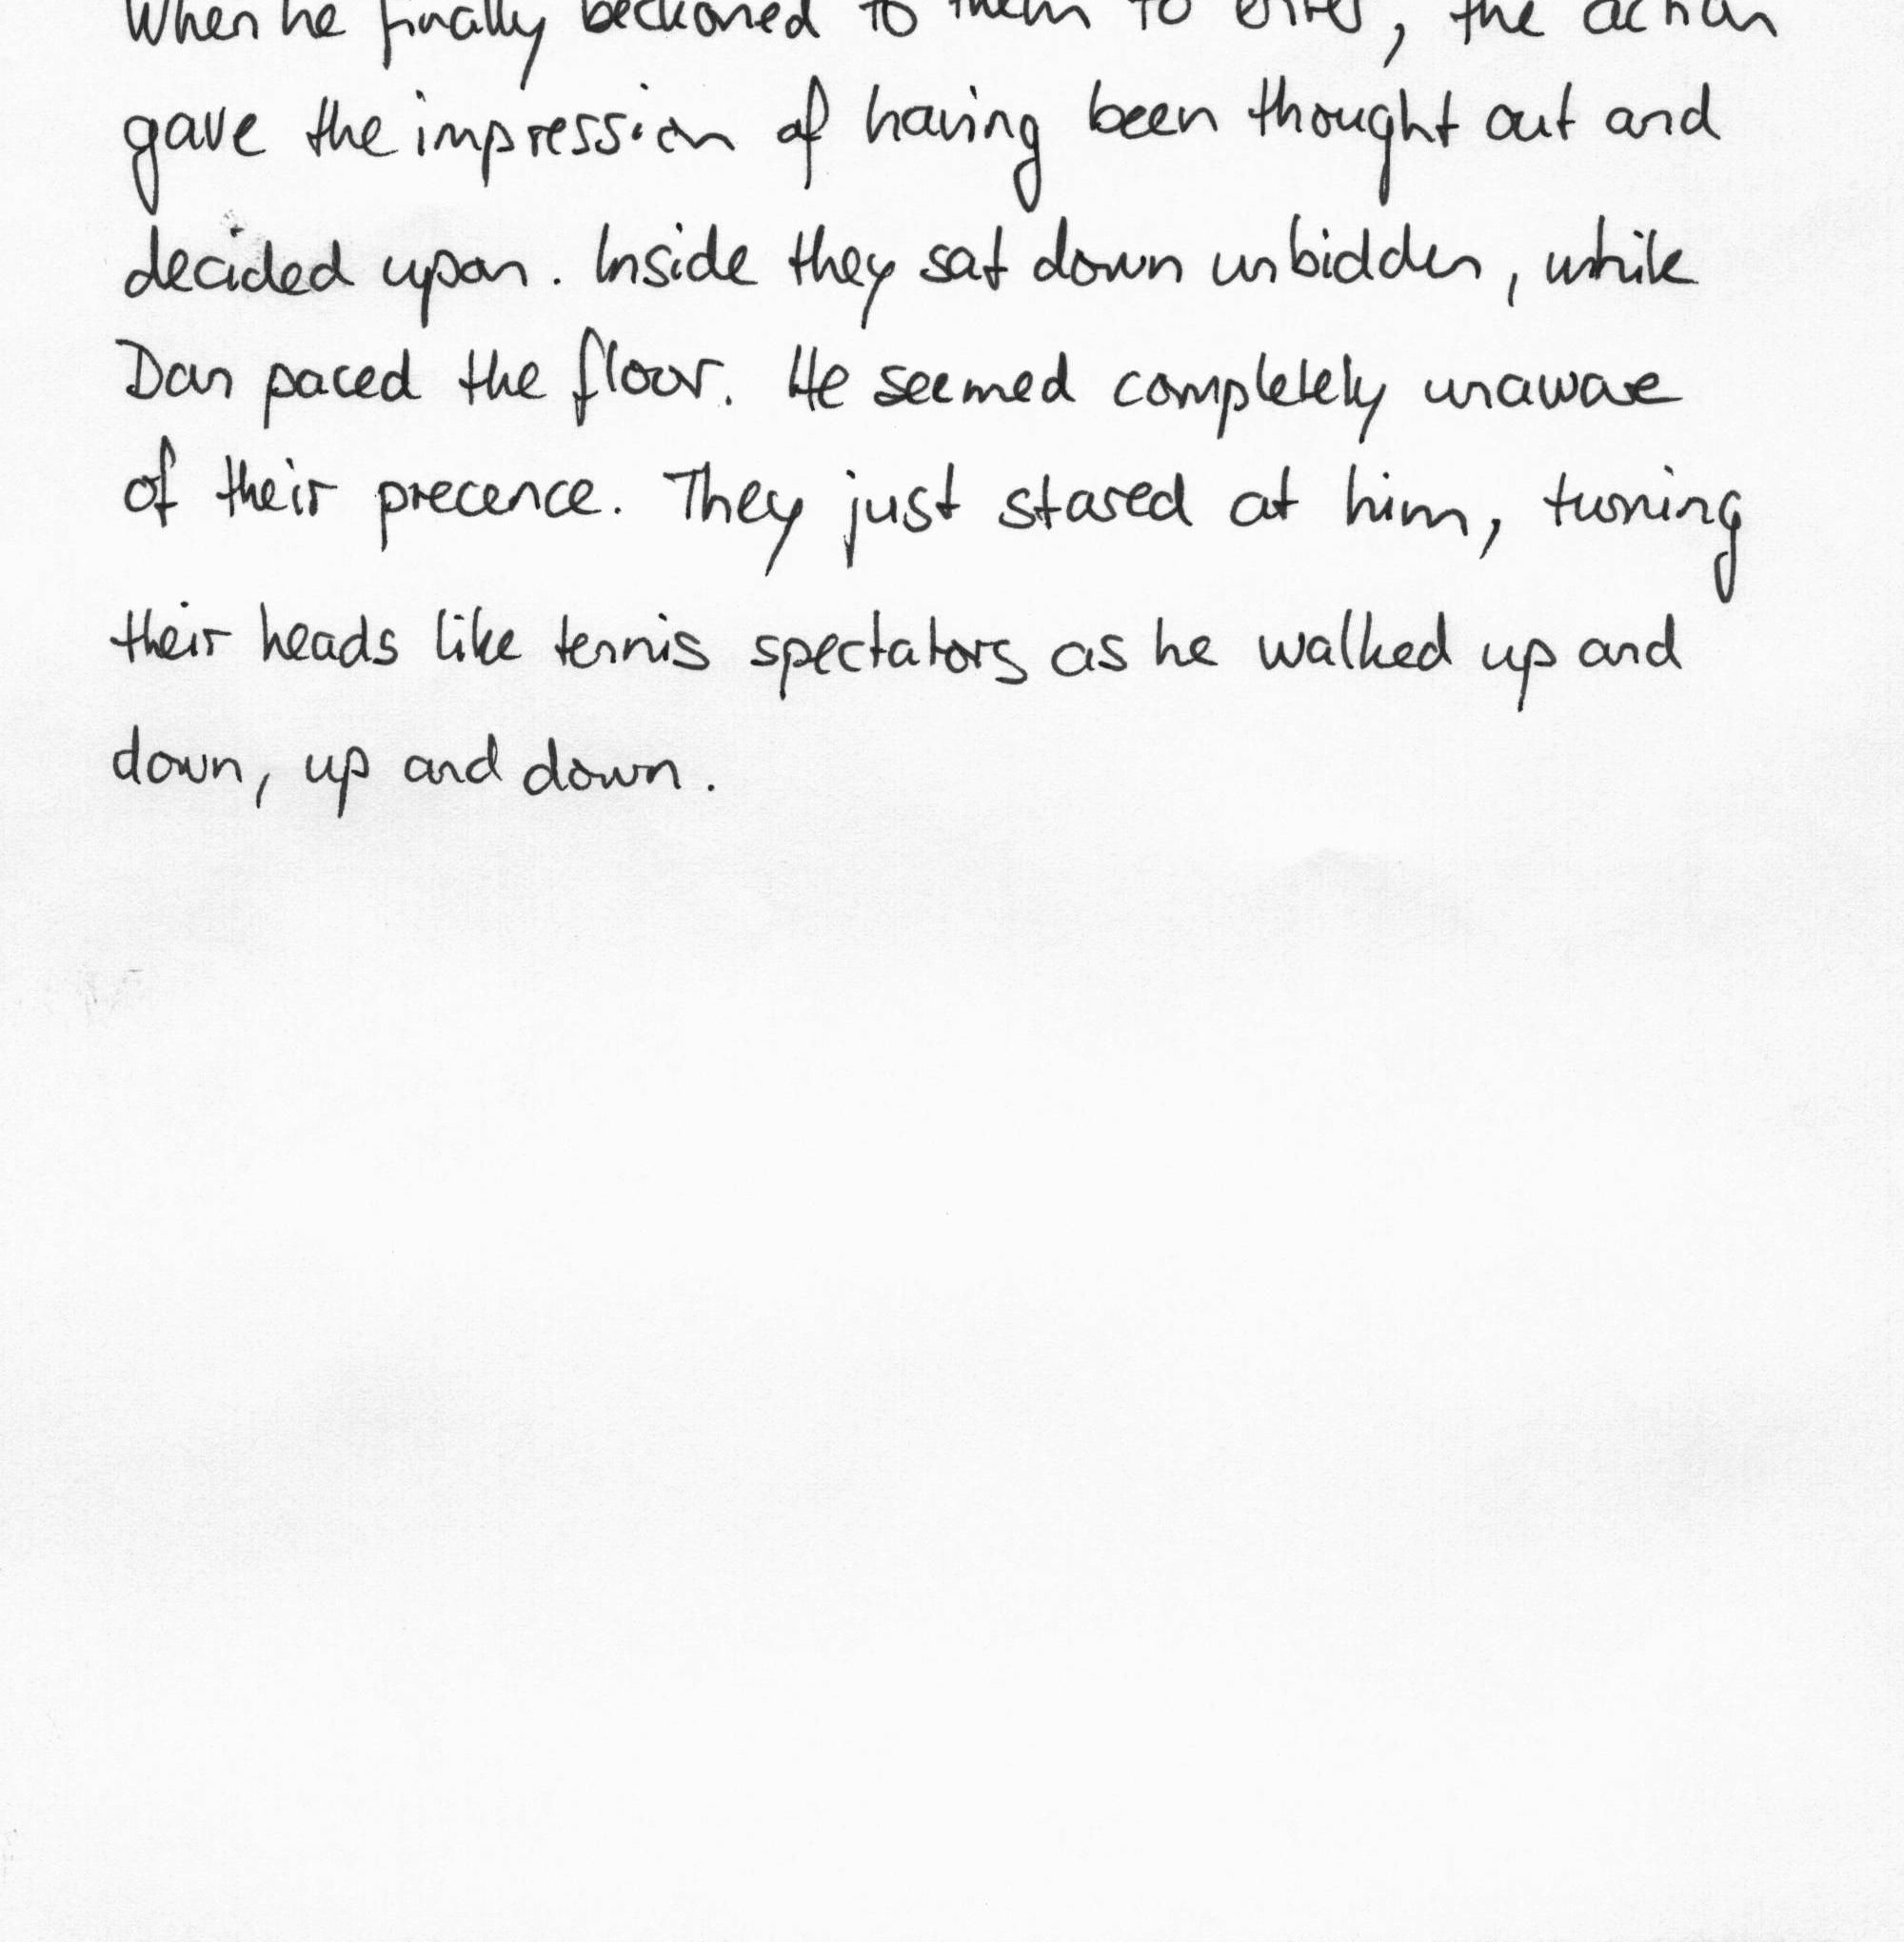 When he finally beckoned to them to enter, the action
gave the impression of having been thought out and
decided upon. Inside they sat down unbidden, while
Dan paced the floor. He seemed completely unaware
of their precence. They just stared at him, turning
their heads like tennis spectators as he walked up and
down, up and down.